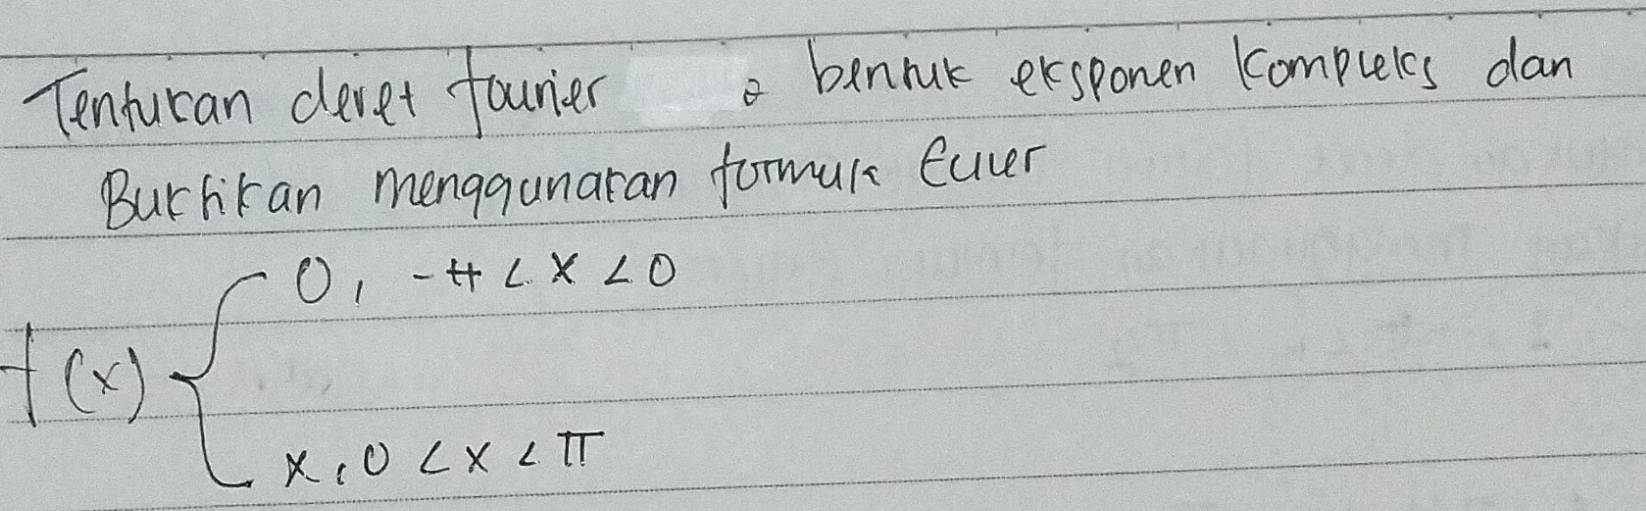 Tentukan deret fourier bentuk eksponen kompleks dan
Buktikan menggunakan formula Euler
0, -π < x < 0
f(x)
x, 0 < x < π